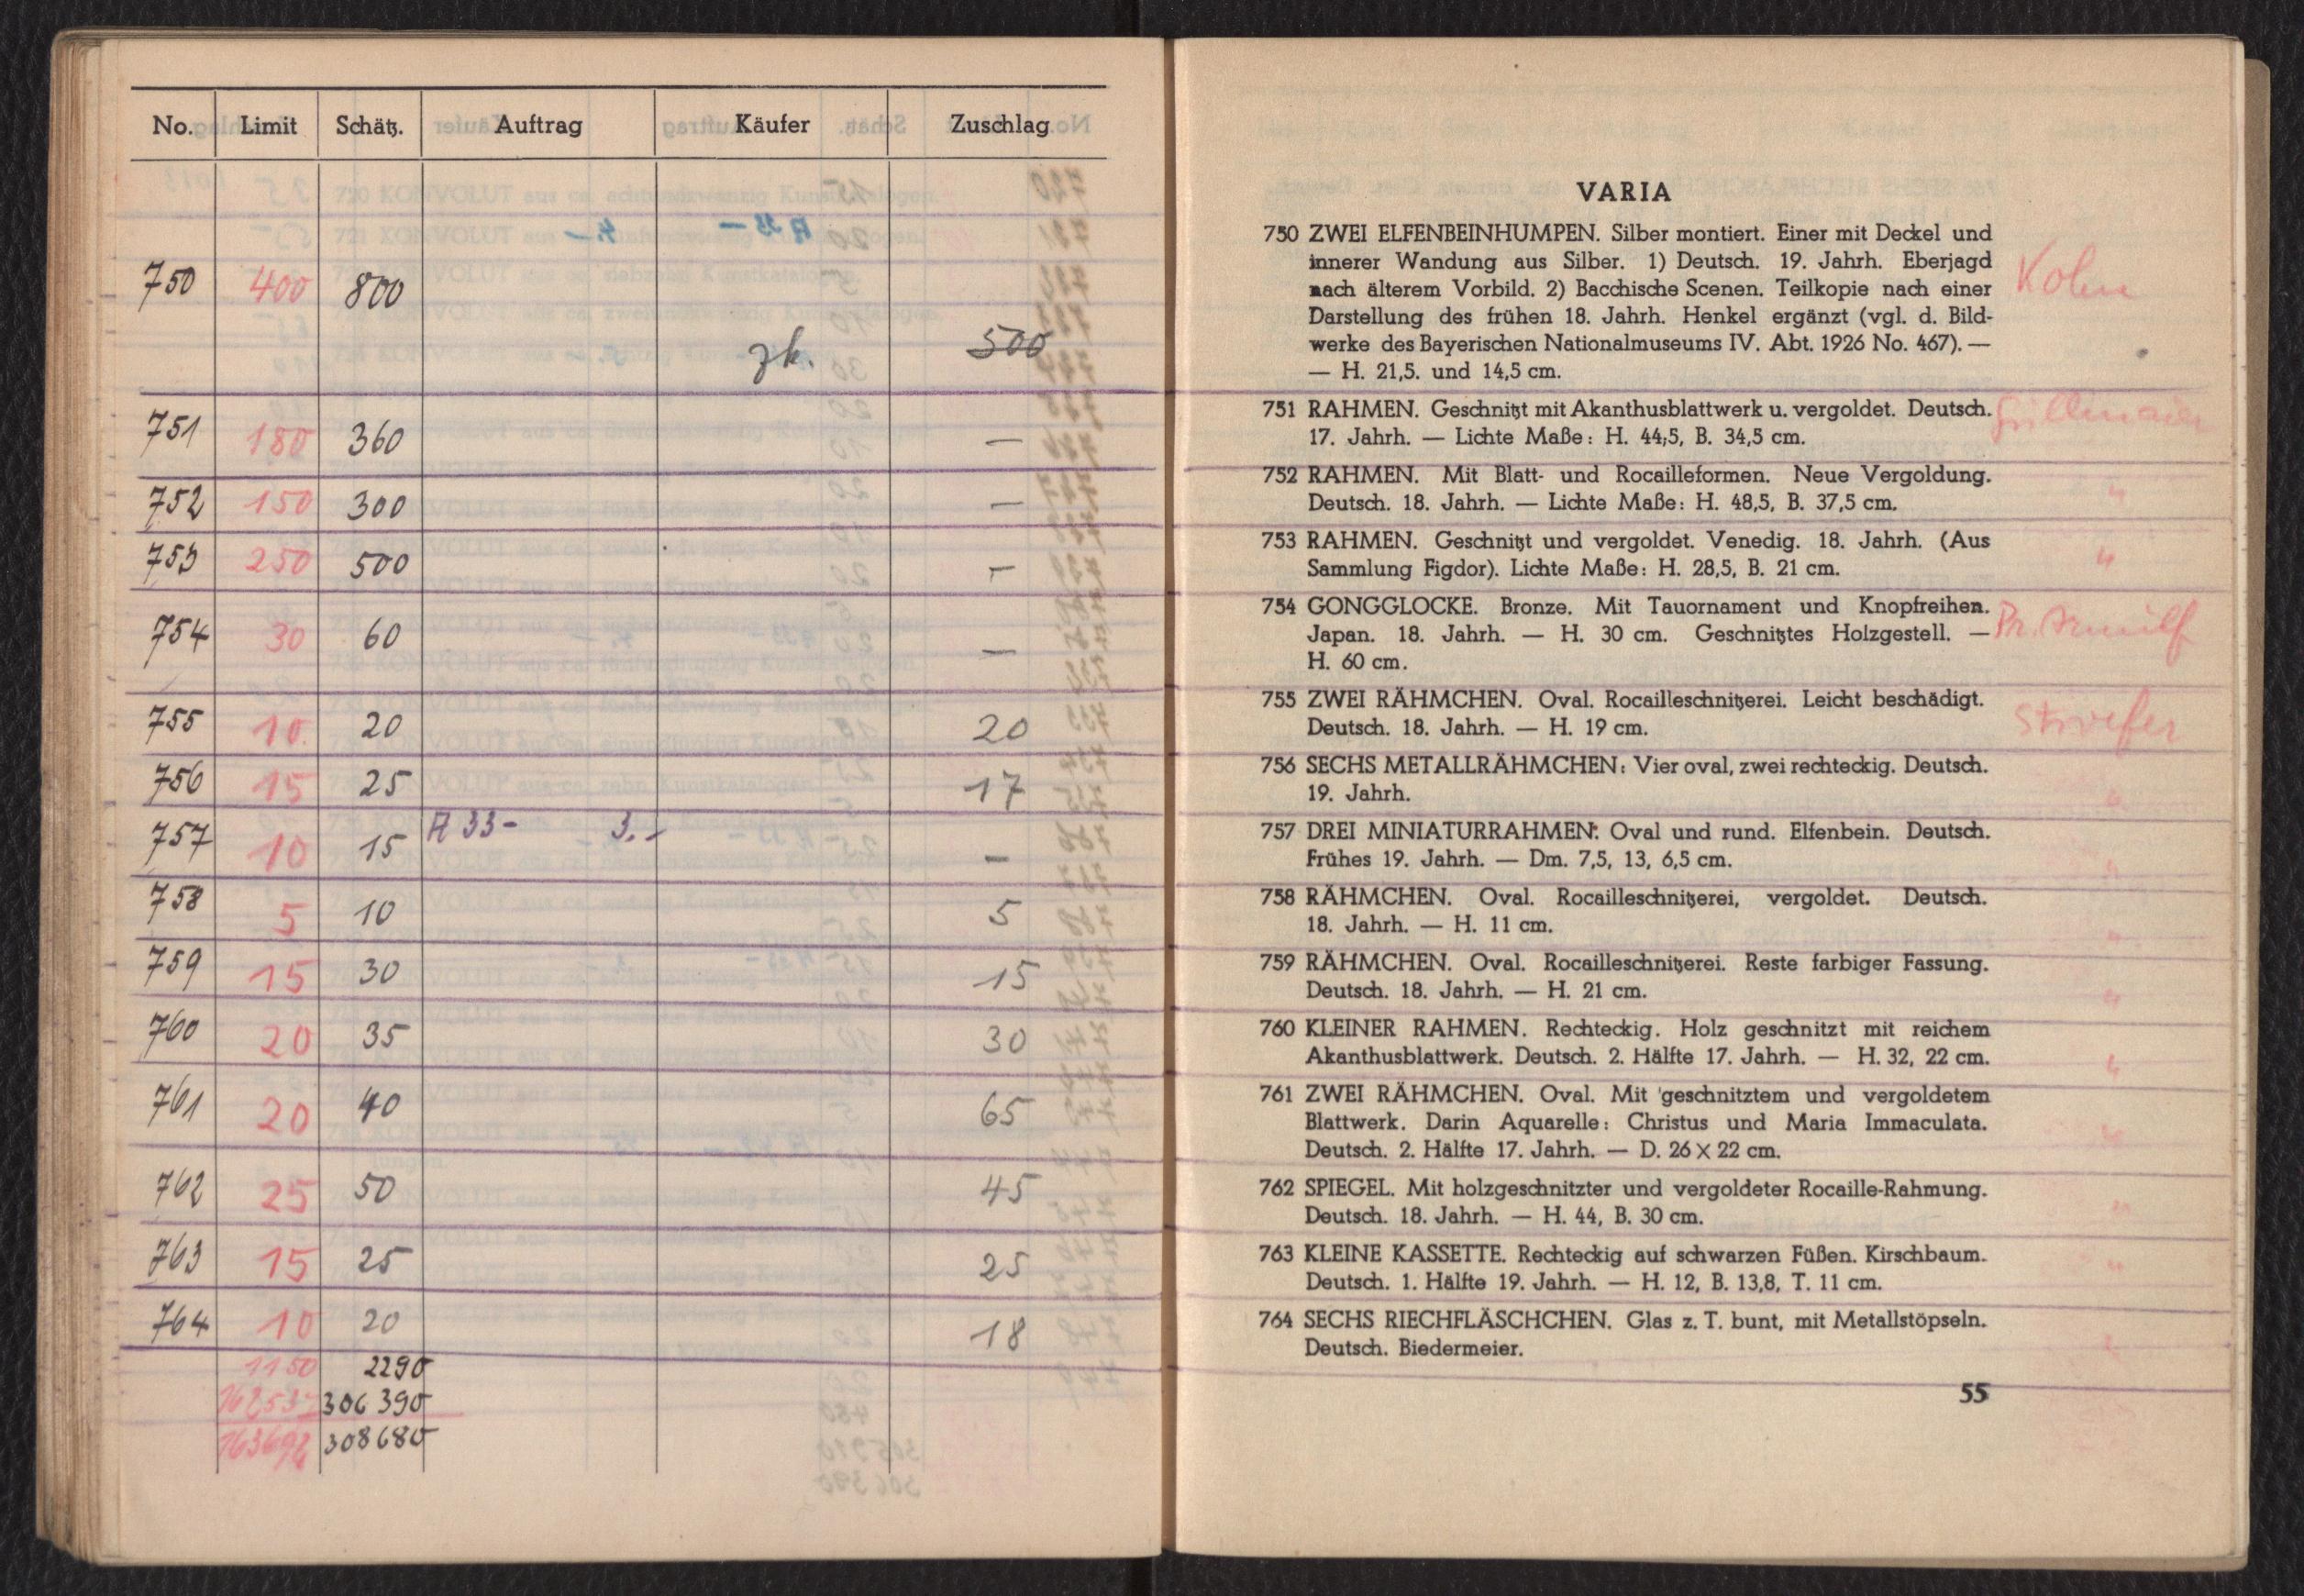 No. Limit Schätz. Auftrag Käufer Zuschlag
750 400 800 500
751 180 360 —
752 150 300 —
753 250 500 —
754 30 60 —
755 10 20 20
756 15 25 17
757 10 15 A 33- 3.- —
758 5 10 5
759 15 30 15
760 20 35 30
761 20 40 65
762 25 50 45
763 15 25 25
764 10 20 18
1150 2290
306 390
308680
VARIA
750 ZWEI ELFENBEINHUMPEN. Silber montiert. Einer mit Deckel und
innerer Wandung aus Silber. 1) Deutsch. 19. Jahrh. Eberjagd
nach älterem Vorbild. 2) Bacchische Scenen. Teilkopie nach einer
Darstellung des frühen 18. Jahrh. Henkel ergänzt (vgl. d. Bild-
werke des Bayerischen Nationalmuseums IV. Abt. 1926 No. 467). —
— H. 21,5. und 14,5 cm.
751 RAHMEN. Geschnitzt mit Akanthusblattwerk u. vergoldet. Deutsch.
17. Jahrh. — Lichte Maße: H. 44,5, B. 34,5 cm.
752 RAHMEN. Mit Blatt- und Rocailleformen. Neue Vergoldung.
Deutsch. 18. Jahrh. — Lichte Maße: H. 48,5, B. 37,5 cm.
"
753 RAHMEN. Geschnitzt und vergoldet. Venedig. 18. Jahrh. (Aus
Sammlung Figdor). Lichte Maße: H. 28,5, B. 21 cm.
"
754 GONGGLOCKE. Bronze. Mit Tauornament und Knopfreihen.
Japan. 18. Jahrh. — H. 30 cm. Geschnitztes Holzgestell. —
Pr. Arnulf
H. 60 cm.
755 ZWEI RÄHMCHEN. Oval. Rocailleschnitzerei. Leicht beschädigt.
Deutsch. 18. Jahrh. — H. 19 cm.
756 SECHS METALLRÄHMCHEN: Vier oval, zwei rechteckig. Deutsch.
19. Jahrh.
"
757 DREI MINIATURRAHMEN: Oval und rund. Elfenbein. Deutsch.
Frühes 19. Jahrh. — Dm. 7,5, 13, 6,5 cm.
"
758 RÄHMCHEN. Oval. Rocailleschnitzerei, vergoldet. Deutsch.
18. Jahrh. — H. 11 cm.
"
759 RÄHMCHEN. Oval. Rocailleschnitzerei. Reste farbiger Fassung.
Deutsch. 18. Jahrh. — H. 21 cm.
"
760 KLEINER RAHMEN. Rechteckig. Holz geschnitzt mit reichem
Akanthusblattwerk. Deutsch. 2. Hälfte 17. Jahrh. — H. 32, 22 cm.
"
761 ZWEI RÄHMCHEN. Oval. Mit geschnitztem und vergoldetem
Blattwerk. Darin Aquarelle: Christus und Maria Immaculata.
"
Deutsch. 2. Hälfte 17. Jahrh. — D. 26 × 22 cm.
762 SPIEGEL. Mit holzgeschnitzter und vergoldeter Rocaille-Rahmung.
Deutsch. 18. Jahrh. — H. 44, B. 30 cm.
"
763 KLEINE KASSETTE. Rechteckig auf schwarzen Füßen. Kirschbaum.
Deutsch. 1. Hälfte 19. Jahrh. — H. 12, B. 13,8, T. 11 cm.
"
764 SECHS RIECHFLÄSCHCHEN. Glas z. T. bunt, mit Metallstöpseln.
Deutsch. Biedermeier.
"
55